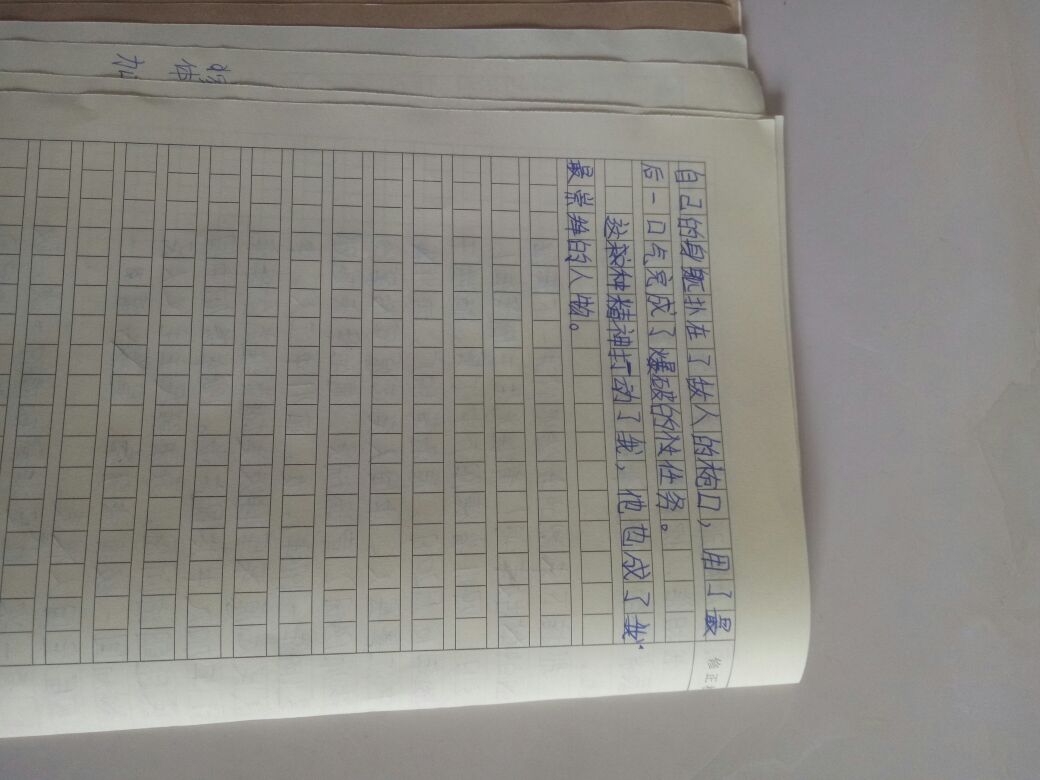 自己的身躯扑在了敌人的枪口，用了最
后一口气完成了爆破的任务。
这种精神打动了我，他也成了我
最崇拜的人物。
修正
体
加